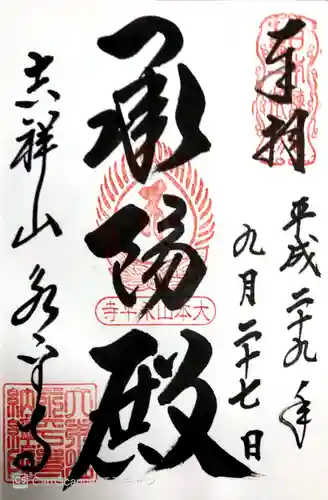 奉拝
平成二十九年
九月二十七日
承陽殿
大本山永平寺
吉祥山永平寺
CS CamScanner